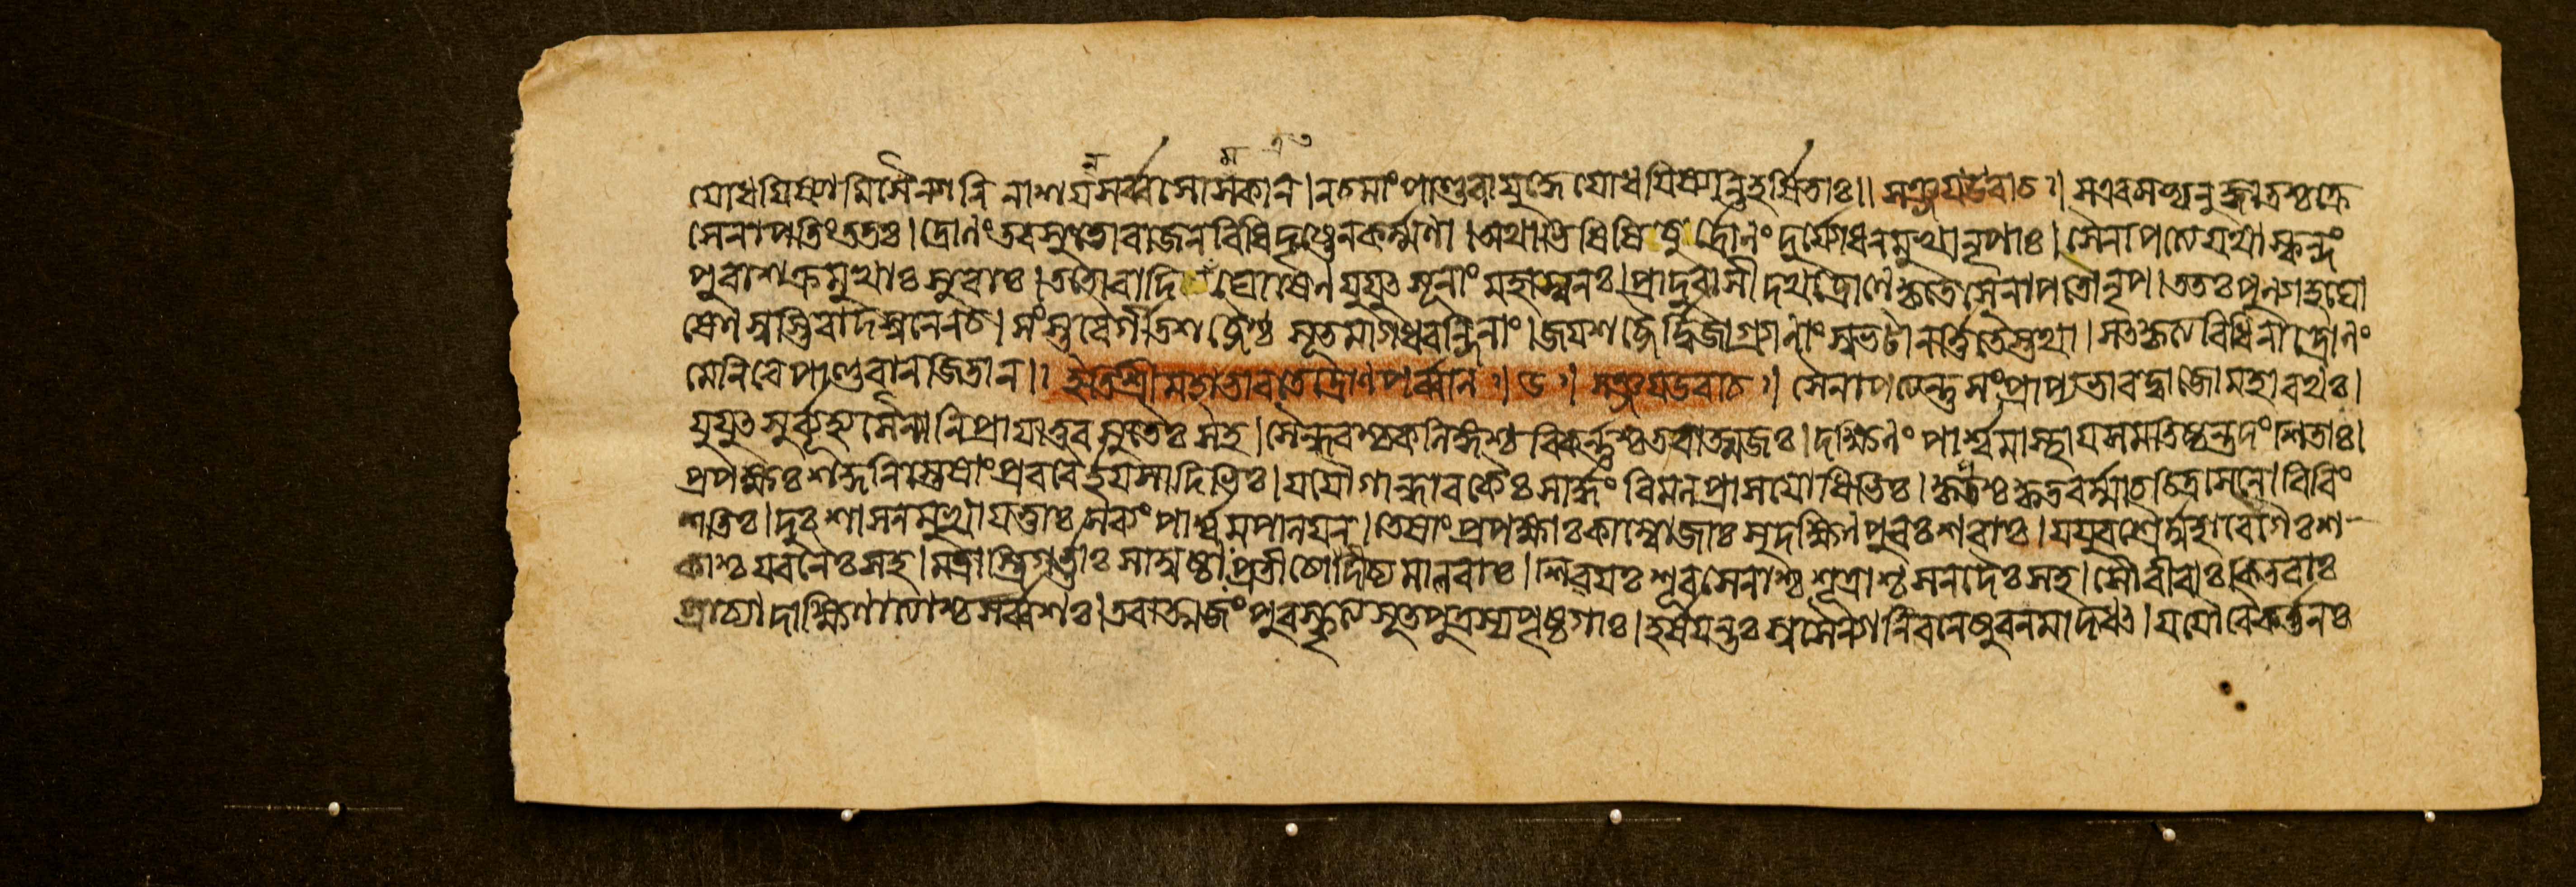 যোধয়িষ্যামি সৈন্যানি নাশয়ন্সর্ব্বসোমকান্। ন চ মাং পাণ্ডবা যুদ্ধে যোধয়িষ্যন্তি হর্ষিতাঃ॥ সঞ্জয় উবাচ॥ স এবমভ্যনুজ্ঞাতশ্চক্রে
সেনাপতিং ততঃ। দ্রোনং তব সুতো রাজন্ বিধিদৃষ্টেন কর্ম্মণা। অথাভিষিষিচুর্দ্রোনং দুর্যোধনমুখা নৃপাঃ। সৈনাপত্যে যথা স্কন্দং
পুরা শক্রমুখাঃ সুরাঃ। ততো বাদিত্রঘোষেন যুযুৎসূনাং মহাস্বনঃ। প্রাদুরাসীদথ দ্রোণে কৃতে সেনাপতৌ নৃপ। ততঃ পুন্যাহঘো
ষেণ স্বস্তিবাদস্বনেন চ। সংস্তবৈর্গীতশব্দৈশ্চ সূতমাগধবন্দিনাং। জয়শব্দৈর্দ্বিজাগ্রানাং সুভটানর্ত্তিতৈস্তথা। সৎকৃত্য বিধিনা দ্রোনং
মেনিরে পাণ্ডবান্ জিতান্॥ ইতি শ্রীমহাভারতে দ্রোণপর্ব্বনি॥ ৬॥ সঞ্জয় উবাচ॥ সেনাপত্যন্তু সংপ্রাপ্য ভারদ্বাজো মহারথঃ।
যুযুৎসুর্ব্যূহ্য সৈন্যানি প্রায়াত্তব সুতৈঃ সহ। সৈন্ধবশ্চ কলিঙ্গশ্চ বিকর্ন্নশ্চ তবাত্মজঃ। দক্ষিনং পার্শ্বমাস্থায় সমতিষ্ঠন্ত দংশিতাঃ।
প্রপক্ষঃ শকুনিস্তেষাং প্রবরৈর্হয়সাদিভিঃ। যযৌ গান্ধারকৈঃ সার্দ্ধং বিমলপ্রাসযোধিভিঃ। কৃপশ্চ কৃতবর্ম্মা চ চিত্রসেনো বিবিং
শতিঃ। দুঃশাসনমুখা যত্তাঃ সব্যং পার্শ্বমপালয়ন্। তেষাং প্রপক্ষাঃ কাম্বোজাঃ সুদক্ষিনপুরঃশরাঃ। যযুরশ্বৈর্মহাবেগৈঃ শ
কাশ্চ যবনৈঃ সহ। মদ্রাস্ত্রিগর্ত্তাঃ সাম্বষ্ঠাঃ প্রতীচ্যোদীচ্যমালবাঃ। শিবয়ঃ শূরসেনাশ্চ শূদ্রাশ্চ মলদৈঃ সহ। সৌবীরাঃ কিতবাঃ
প্রাচ্যা দাক্ষিণাত্যাশ্চ সর্ব্বশঃ। তবাত্মজং পুরস্কৃত্য সূতপুত্রস্য পৃষ্ঠগাঃ। হর্ষয়ন্তঃ স্বসৈন্যানি বলেষু বলমাদধৎ। যযৌ বৈকর্ত্তনঃ